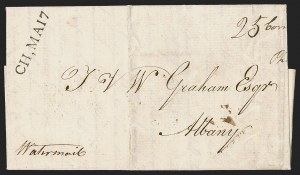 CH, MA 17
25
T V W Graham Esqr
Albany
Watermail